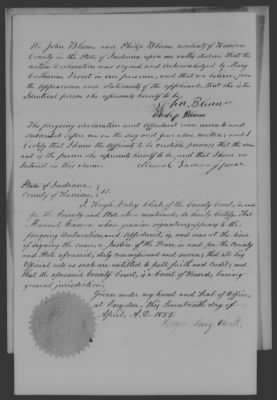 We John Blume and Philip Blume residents of Harrison
County in the State of Indiana upon our oaths declare that
the within declaration was signed and acknowledged by Mary
Catharine Frost in our presence, and that we believe, from
the appearance and statements of the applicant, that she is the
identical person she represents herself to be.
John Blume
Philip Blume
The foregoing declaration and affidavit were sworn to and
subscribed before me on the day and year above written; and I
Certify that I know the affiants to be credible persons that the
is the person she represents herself to be, and that I have no
interest in this claim.
State of Indiana
County of Harrison } ss.
I, Clerk of the County Court, in and
for the County and State above mentioned, do hereby certify, that
whose genuine signature appears to the
foregoing declaration and affidavit, is, and was at the time
of signing the same, a Justice of the Peace in and for the County
and State aforesaid, duly commissioned and sworn; that all his
Official acts as such are entitled to full faith and credit; and
that the aforesaid County Court, is a Court of Record, having
general jurisdiction.
Given under my hand and Seal of Office,
at Corydon, this Seventeenth day of
April, A.D. 1855.
Clerk.